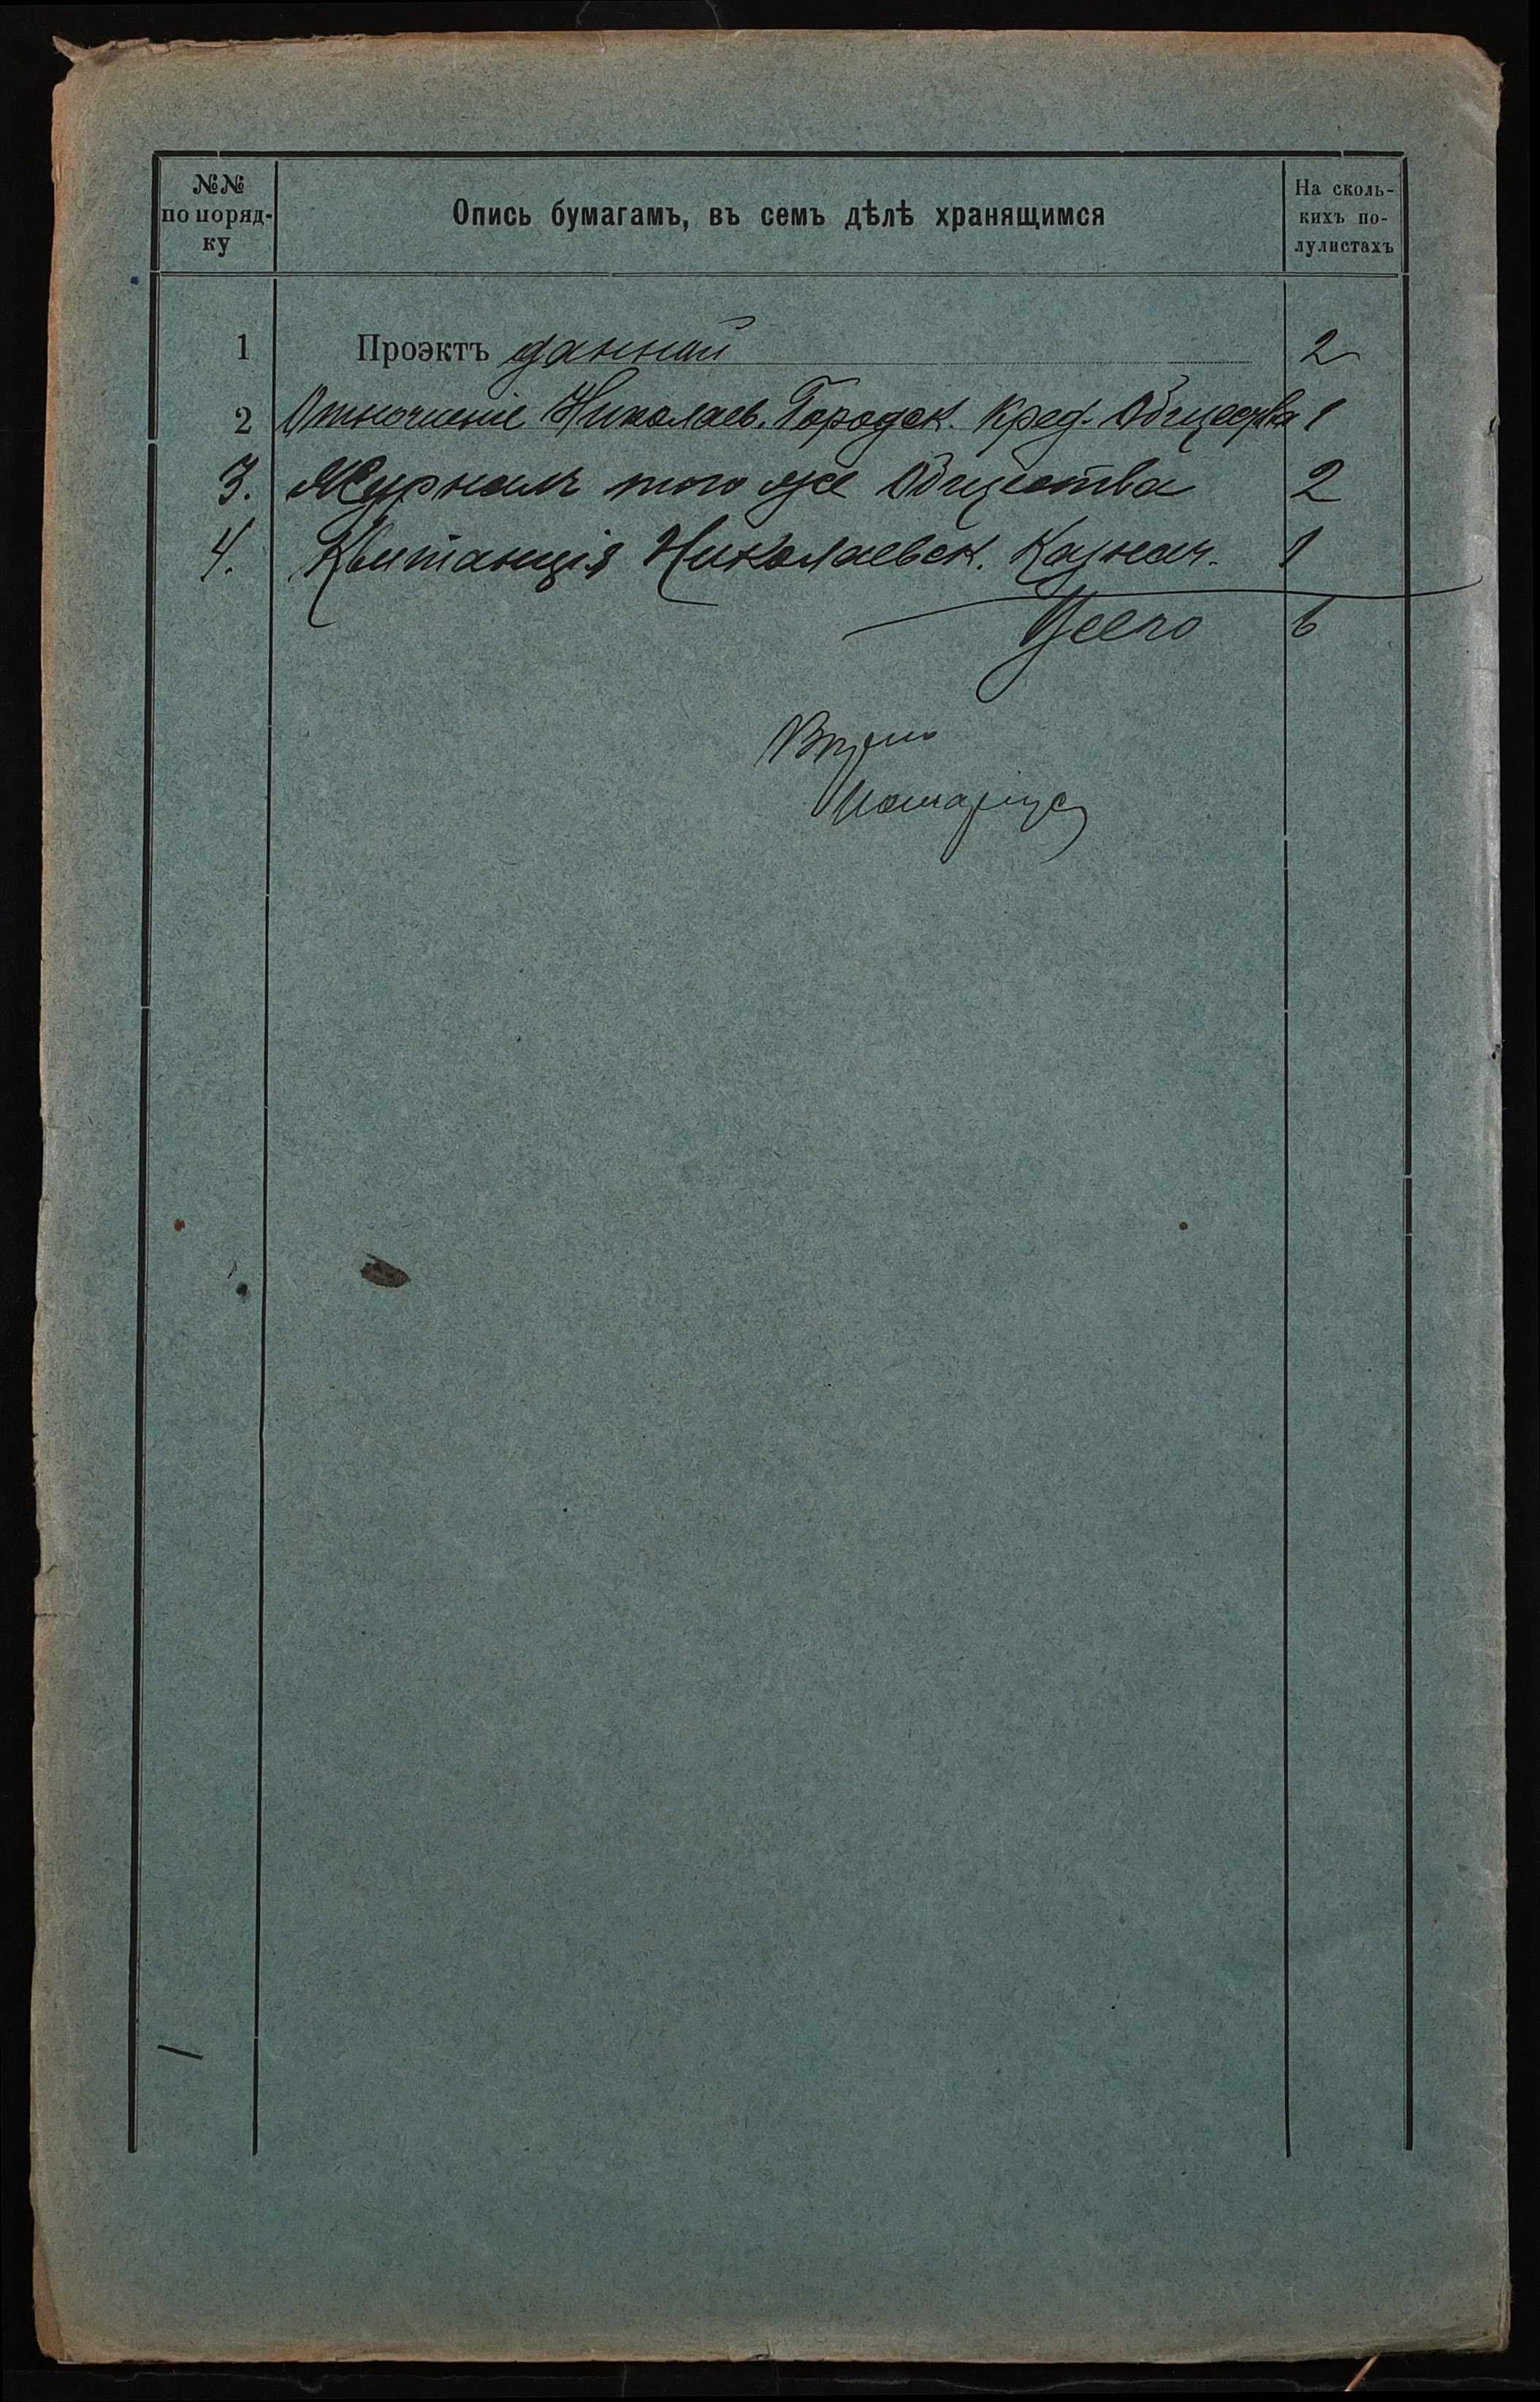 №№ по поряд-ку
Опись бумагамъ, въ семъ дѣлѣ хранящимся
На сколь-кихъ по-лулистахъ
1 Проэктъ данной 2
2 Отношеніе Николаев. Городск. Кред. Общества 1
3. Журналъ того же Общества 2
4. Квитанція Николаевск. Казнач. 1
Всего 6
Нотаріус